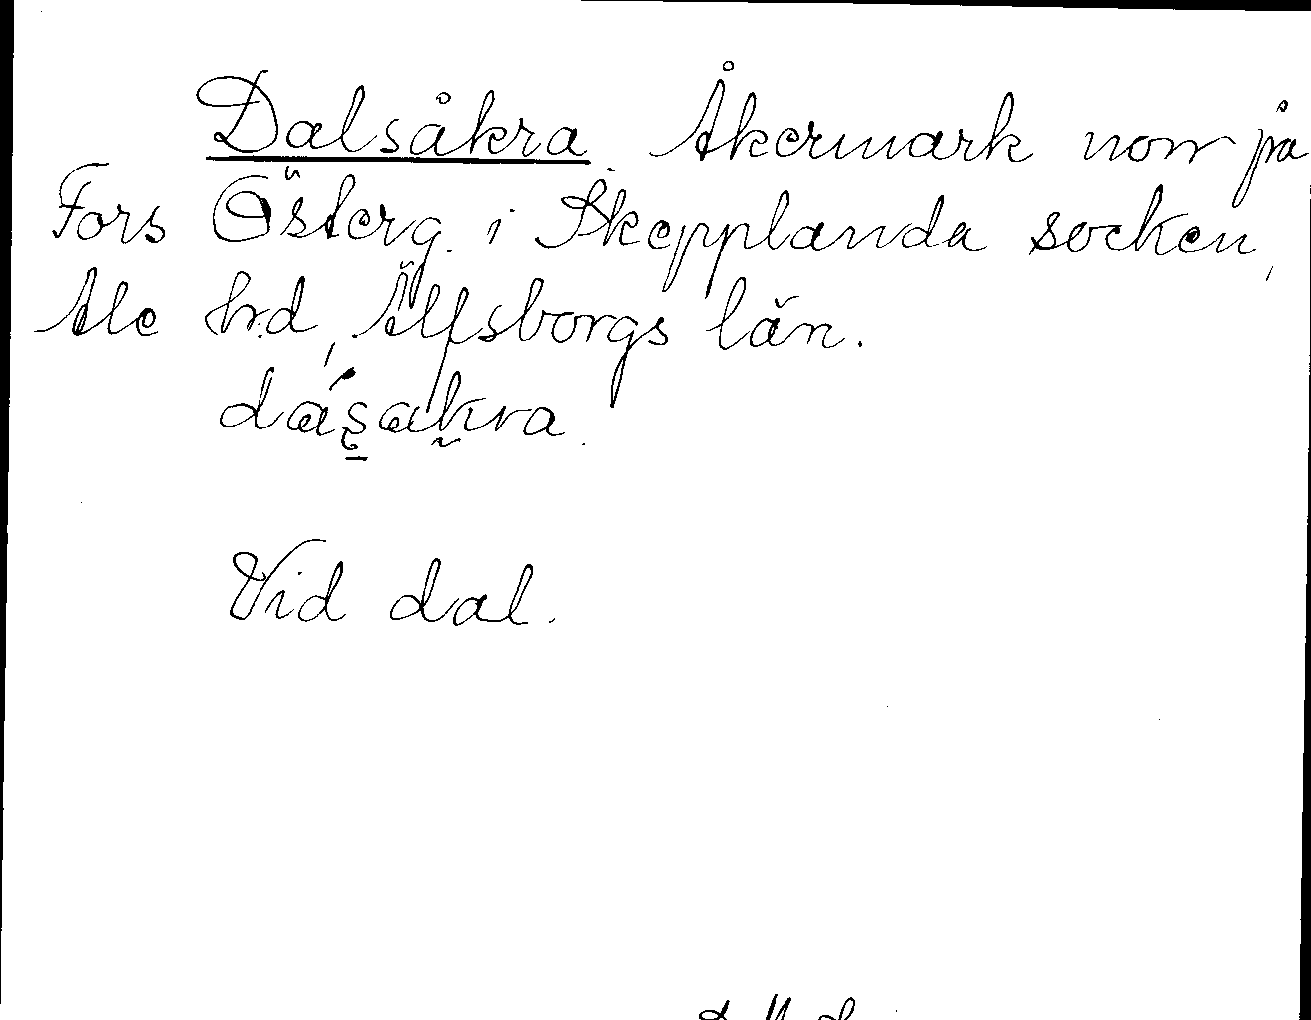 Dalsåkra. Åkermark norr på
Fors Österg. i Skepplanda socken,
Ale hd, Älfsborgs län.
Vid dal.